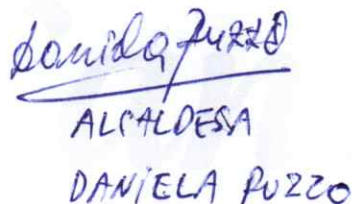 Daniela Puzzo
ALCALDESA
DANIELA PUZZO